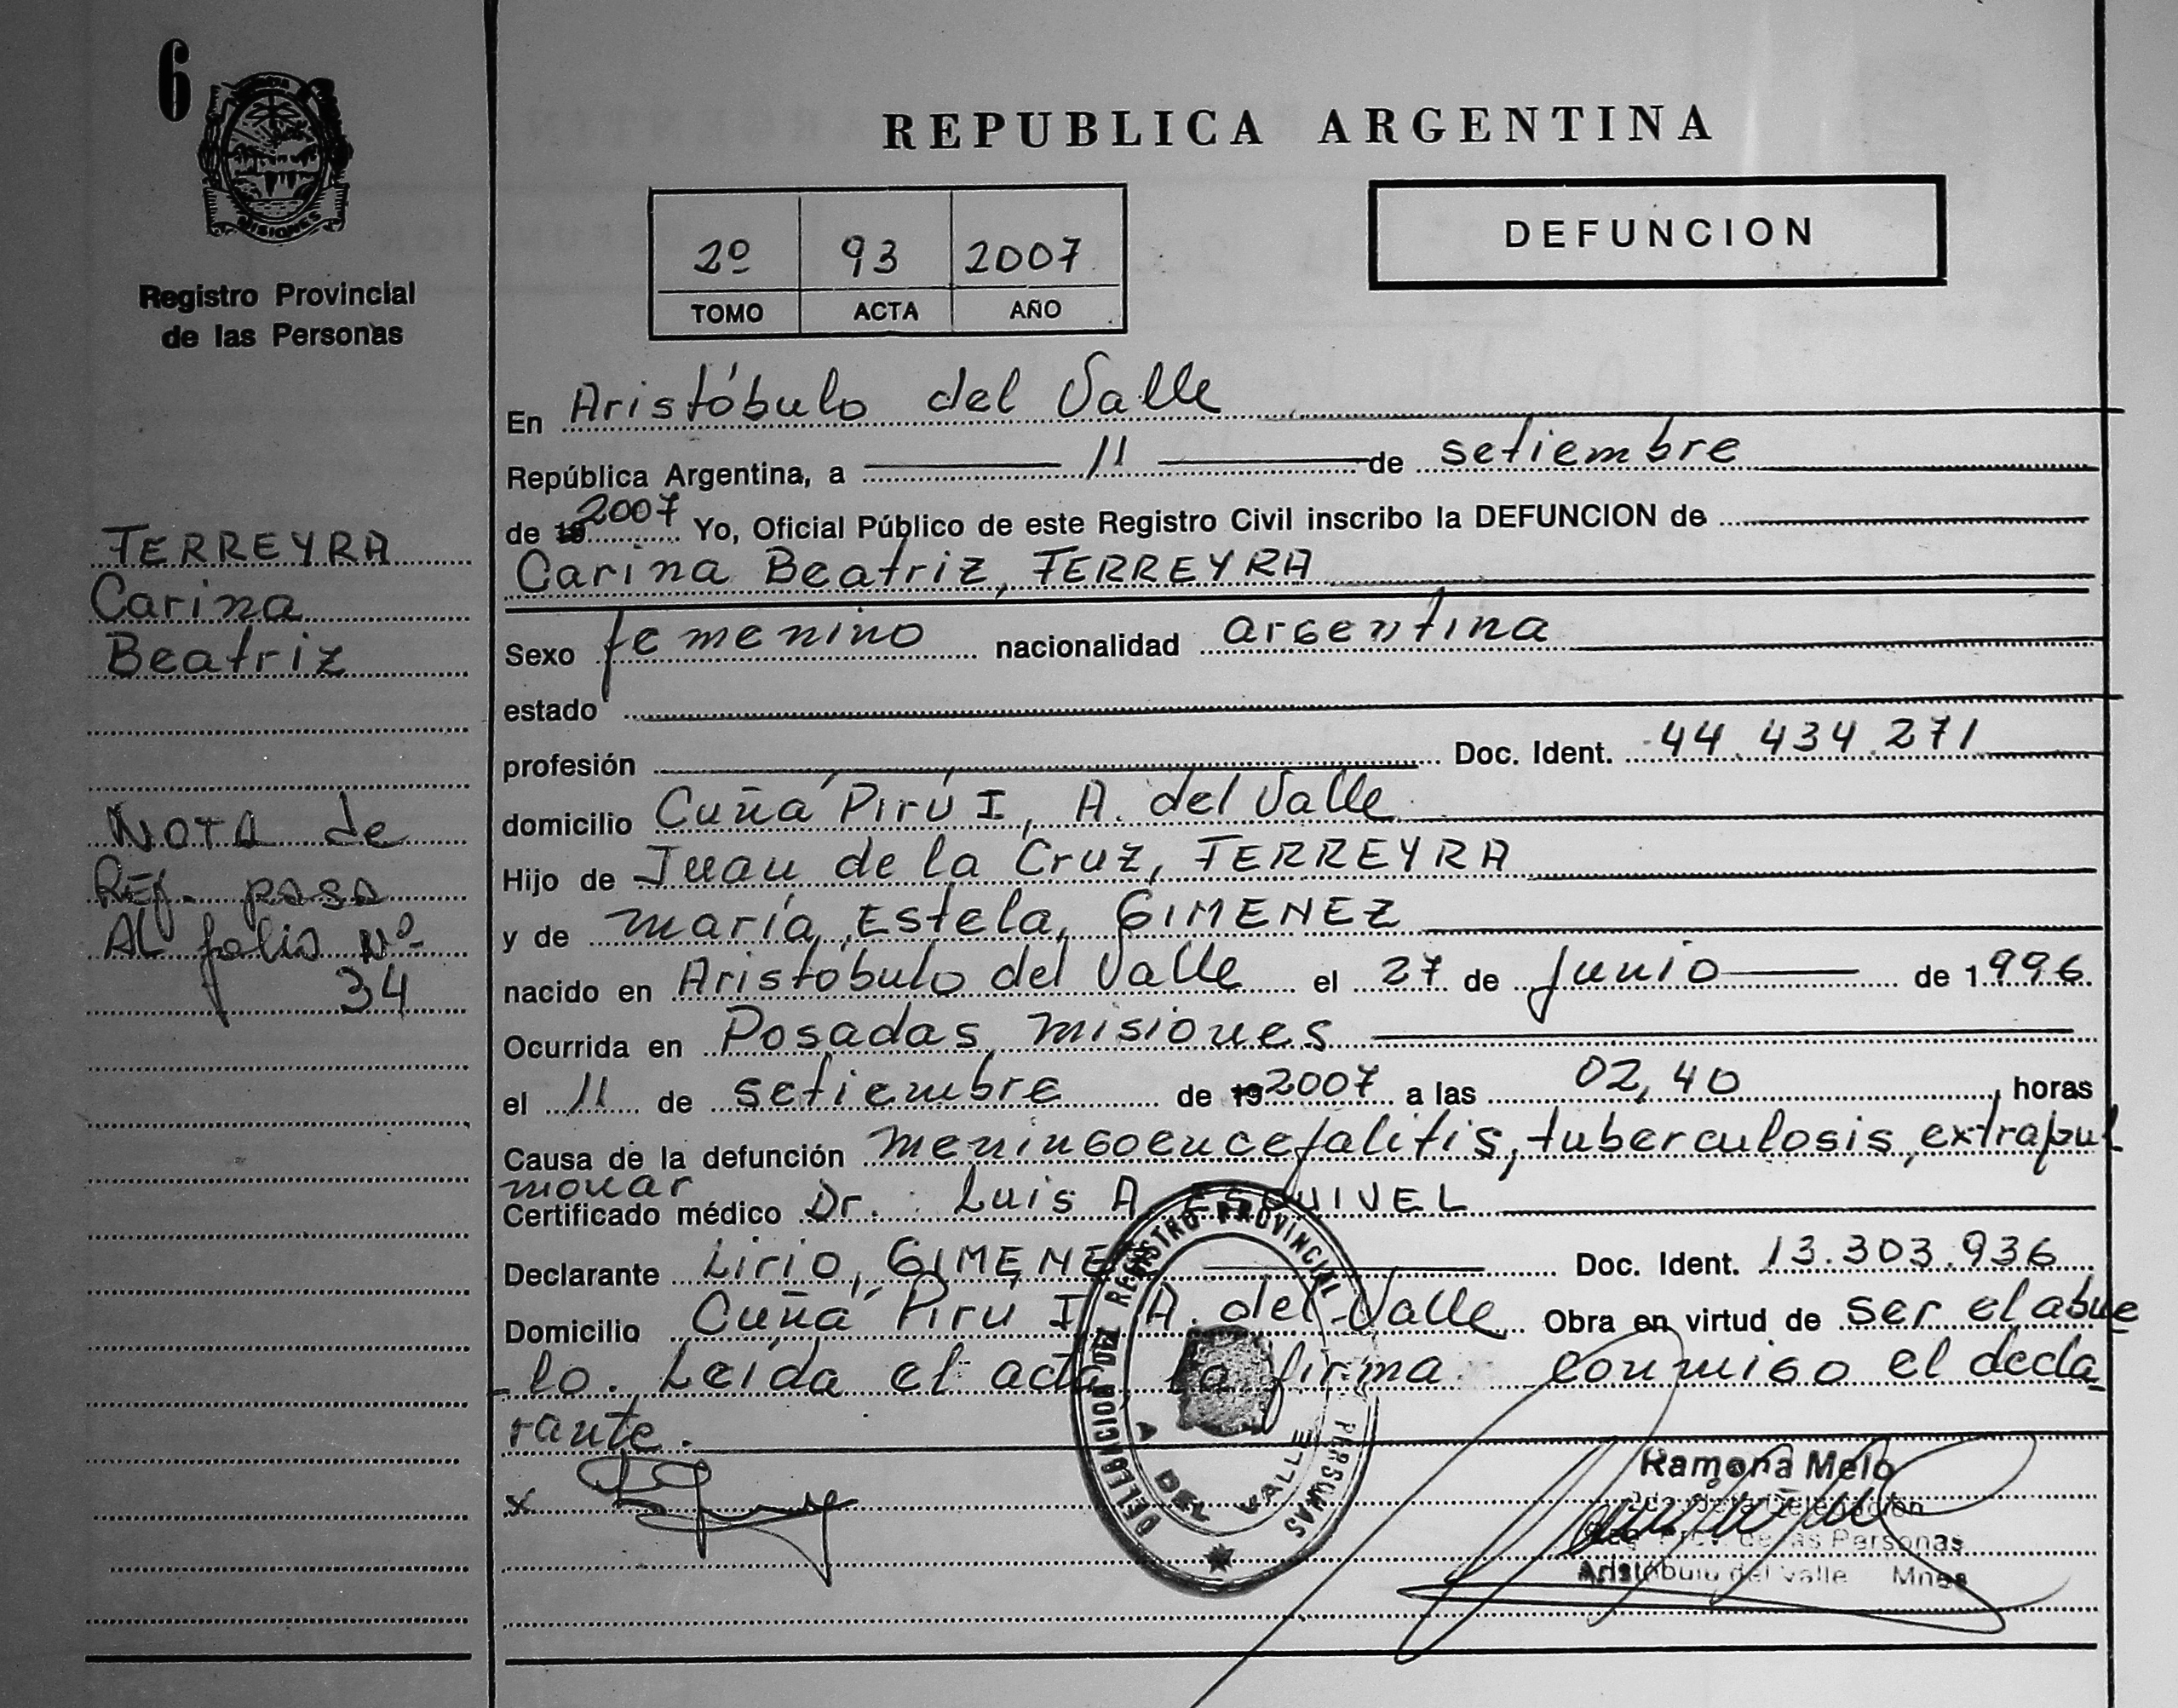 6
MISIONES
Registro Provincial
de las Personas
REPUBLICA ARGENTINA
2º 93 2007
TOMO ACTA AÑO
DEFUNCION
En Aristóbulo del Valle
República Argentina, a 11 de setiembre
de 19 2007 Yo, Oficial Público de este Registro Civil inscribo la DEFUNCION de
Carina Beatriz, FERREYRA
Sexo femenino nacionalidad argentina
estado
profesión Doc. Ident. 44.434.271
domicilio Cuñá Pirú I, A. del Valle
Hijo de Juan de la Cruz, FERREYRA
y de María Estela, GIMENEZ
nacido en Aristóbulo del Valle el 27 de junio de 1996
Ocurrida en Posadas, misiones
el 11 de setiembre de 19 2007 a las 02,40 horas
Causa de la defunción meningoencefalitis, tuberculosis, extrapul
monar
Certificado médico Dr. Luis A. ESQUIVEL
Declarante Lirio, GIMENEZ Doc. Ident. 13.303.936
Domicilio Cuñá Pirú I, A. del Valle Obra en virtud de ser el abue
-lo. Leída el acta la firma conmigo el decla_
rante.
x
FERREYRA
Carina
Beatriz
NOTA de
REF. pasa
AL folio Nº
34
DELEGACION DEL REGISTRO PROVINCIAL PERSONAS
A DEL VALLE
Ramona Melo
Delegación
Reg. Prov. de las Personas
Aristóbulo del Valle Mnes